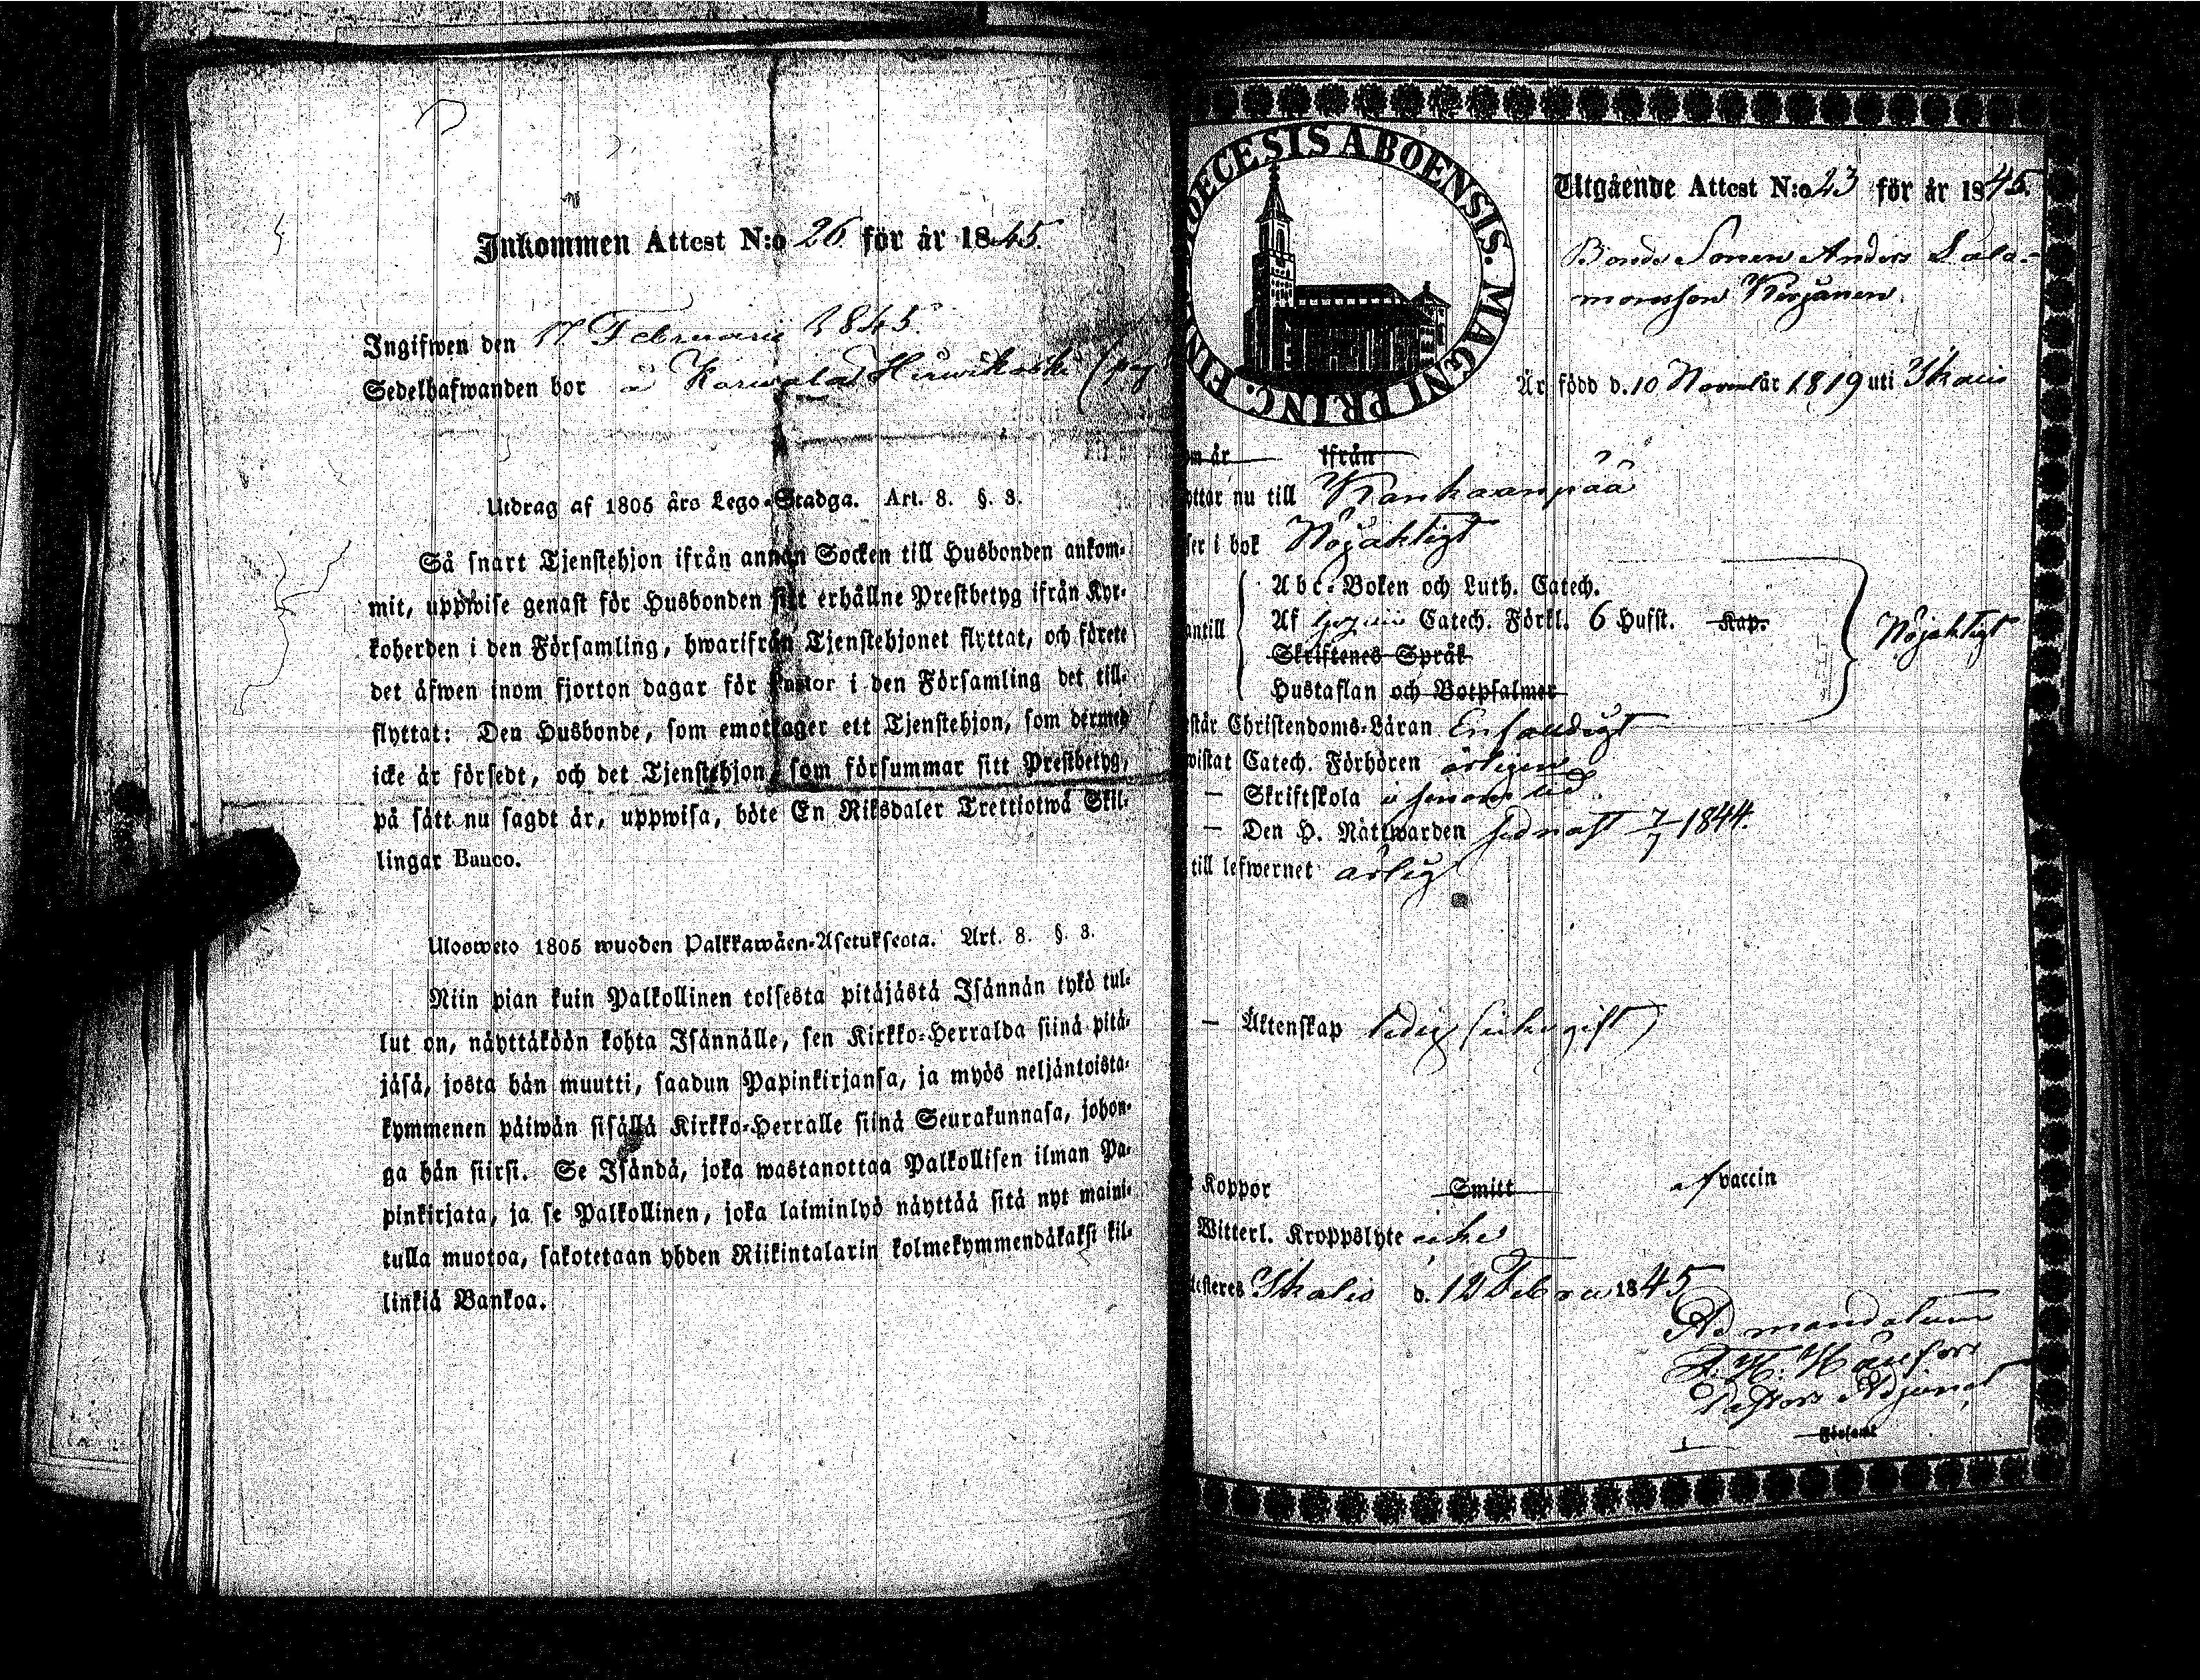 Inkommen Attest N:o 26 för år 1845.
Ingifwen den 17 Februarii 1845.
Sedelhafwanden bor å
Utdrag af 1805 års Lego-Stadga. Art. 8. §. 3.
Så snart Tjenstehjon ifrån annan Socken till Husbonden ankom-
mit, uppwise genast för Husbonden sitt erhållne Prestbetyg ifrån Kyr-
koherden i den Församling, hwarifrån Tjenstehjonet flyttat, och förete
det äfwen inom fjorton dagar för Pastor i den Församling det till-
flyttat: Den Husbonde, som emottager ett Tjenstehjon, som dermed
icke är försedt, och det Tjenstehjon, som försummar sitt Prestbetyg,
på sätt nu sagdt är, uppwisa, böte En Riksdaler Trettiotwå Skil-
lingar Banco.
Ulosweto 1805 wuoden Palkkawäen-Asetuksesta. Art. 8. §. 3.
Niin pian kuin Palkollinen toisesta pitäjästä Isännän tykö tul-
lut on, näyttäköön kohta Isännälle, sen Kirkko-Herralda siinä pitä-
jäsä, josta hän muutti, saadun Papinkirjansa, ja myös neljäntoista-
kymmenen päiwän sisällä Kirkko-Herralle siinä Seurakunnasa, johon-
ga hän siirsi. Se Isändä, joka wastanottaa Palkollisen ilman Pa-
pinkirjata, ja se Palkollinen, joka laiminlyö näyttää sitä nyt maini-
tulla muotoa, sakotetaan yhden Riikintalarin kolmekymmendäkaksi kil-
linkiä Bankoa.
DECESIS ABOENSIS. MAGNI PRINC. FIN
Utgående Attest N:o 23 för år 1845.
Bonde Sonen Anders Salo-
monsson Kerjänen
Är född d. 10 Novemb år 1819 uti Ikalis
om år ifrån
ottar nu till Kankaanpää
ser i bok Nöjaktigt
Abc-Boken och Luth. Catech.
antill Af Catech. Förkl. 6 Hufst. Kap. Nöjaktigt
Skriftenes Språk
Hustaflan och Botpsalmer
står Christendoms-Läran Enfalldigt
wistat Catech. Förhören årligen
— Skriftskola i senare tid
— Den H. Nattwarden sednast 7/7 1844.
till lefwernet ärlig
— Äktenskap ledig (icke gift)
Koppor Smitt af vaccin
Witterl. Kroppslyte icke
testeres Ikalis d. 12 Februa 1845
Ad mandatum
Pastors Adjunct
Församl